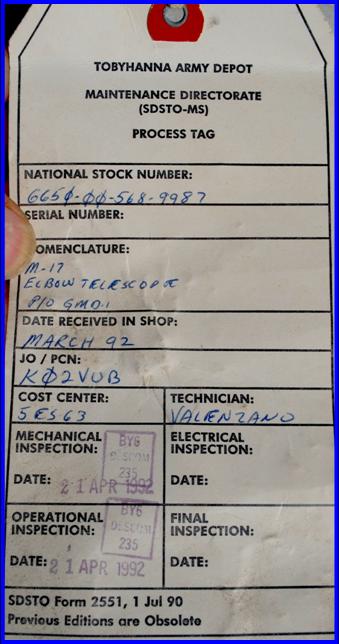 TOBYHANNA ARMY DEPOT
MAINTENANCE DIRECTORATE
(SDSTO-MS)
PROCESS TAG
NATIONAL STOCK NUMBER:
665Ø-ØØ-568-9987
SERIAL NUMBER:
NOMENCLATURE:
M-17
ELBOW TELESCOPE
P/O GMD.1
DATE RECEIVED IN SHOP:
MARCH 92
JO / PCN:
KØ2VUB
COST CENTER:
5ES63
TECHNICIAN:
VALENZANO
MECHANICAL
INSPECTION:
BYG
DESCOM
235
DATE: 21 APR 1992
ELECTRICAL
INSPECTION:
DATE:
OPERATIONAL
INSPECTION:
BYG
DESCOM
235
DATE: 21 APR 1992
FINAL
INSPECTION:
DATE:
SDSTO Form 2551, 1 Jul 90
Previous Editions are Obsolete